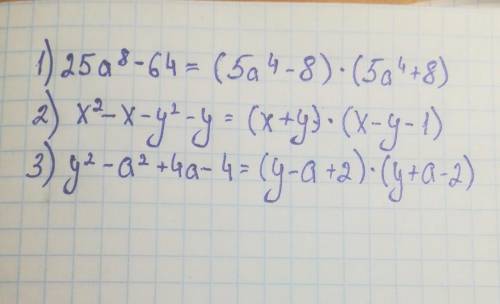 1) 25a⁸ - 64 = (5a⁴ - 8) · (5a⁴ + 8)
2) x² - x - y² - y = (x + y) · (x - y - 1)
3) y² - a² + 4a - 4 = (y - a + 2) · (y + a - 2)